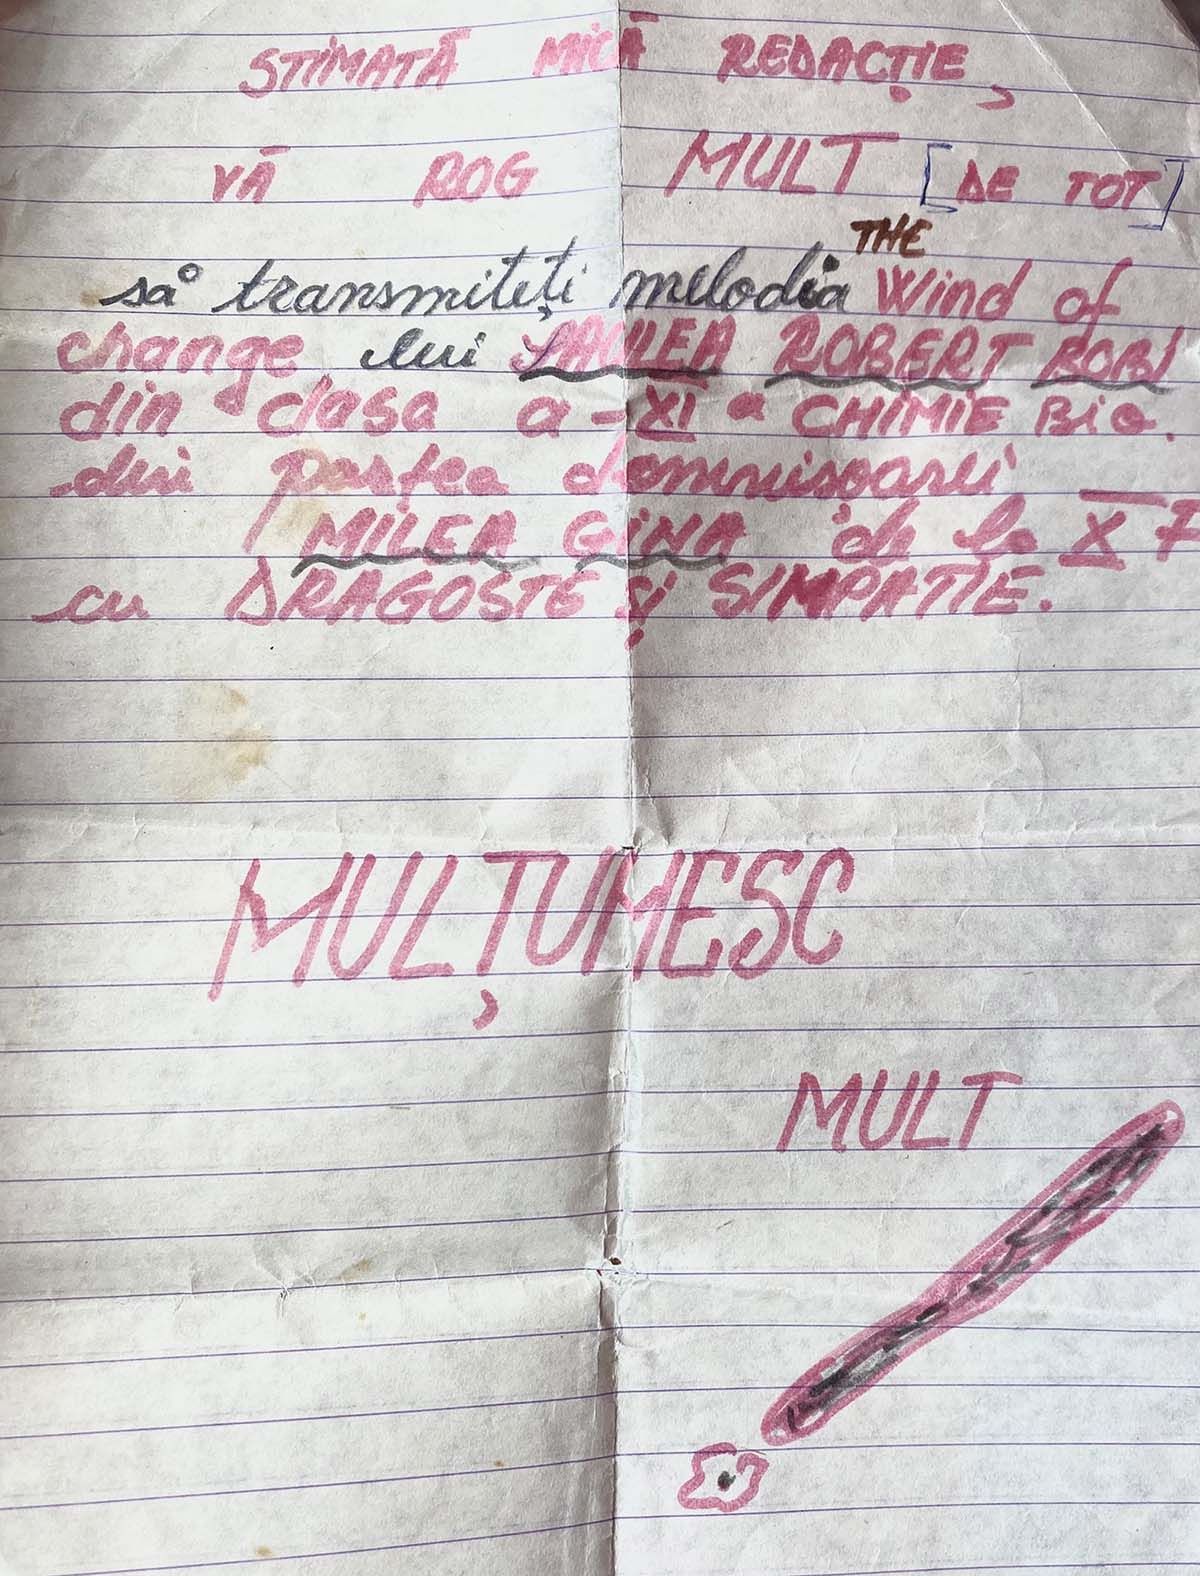 STIMATĂ MICĂ REDACȚIE,
VĂ ROG MULT [DE TOT]
THE
să transmiteți melodia Wind of
change lui ROBERT BOBI
din clasa a-XI a CHIMIE BIO.
din partea domnișoarei
MILEA GINA de la X F
cu DRAGOSTE și SIMPATIE.
MULȚUMESC
MULT